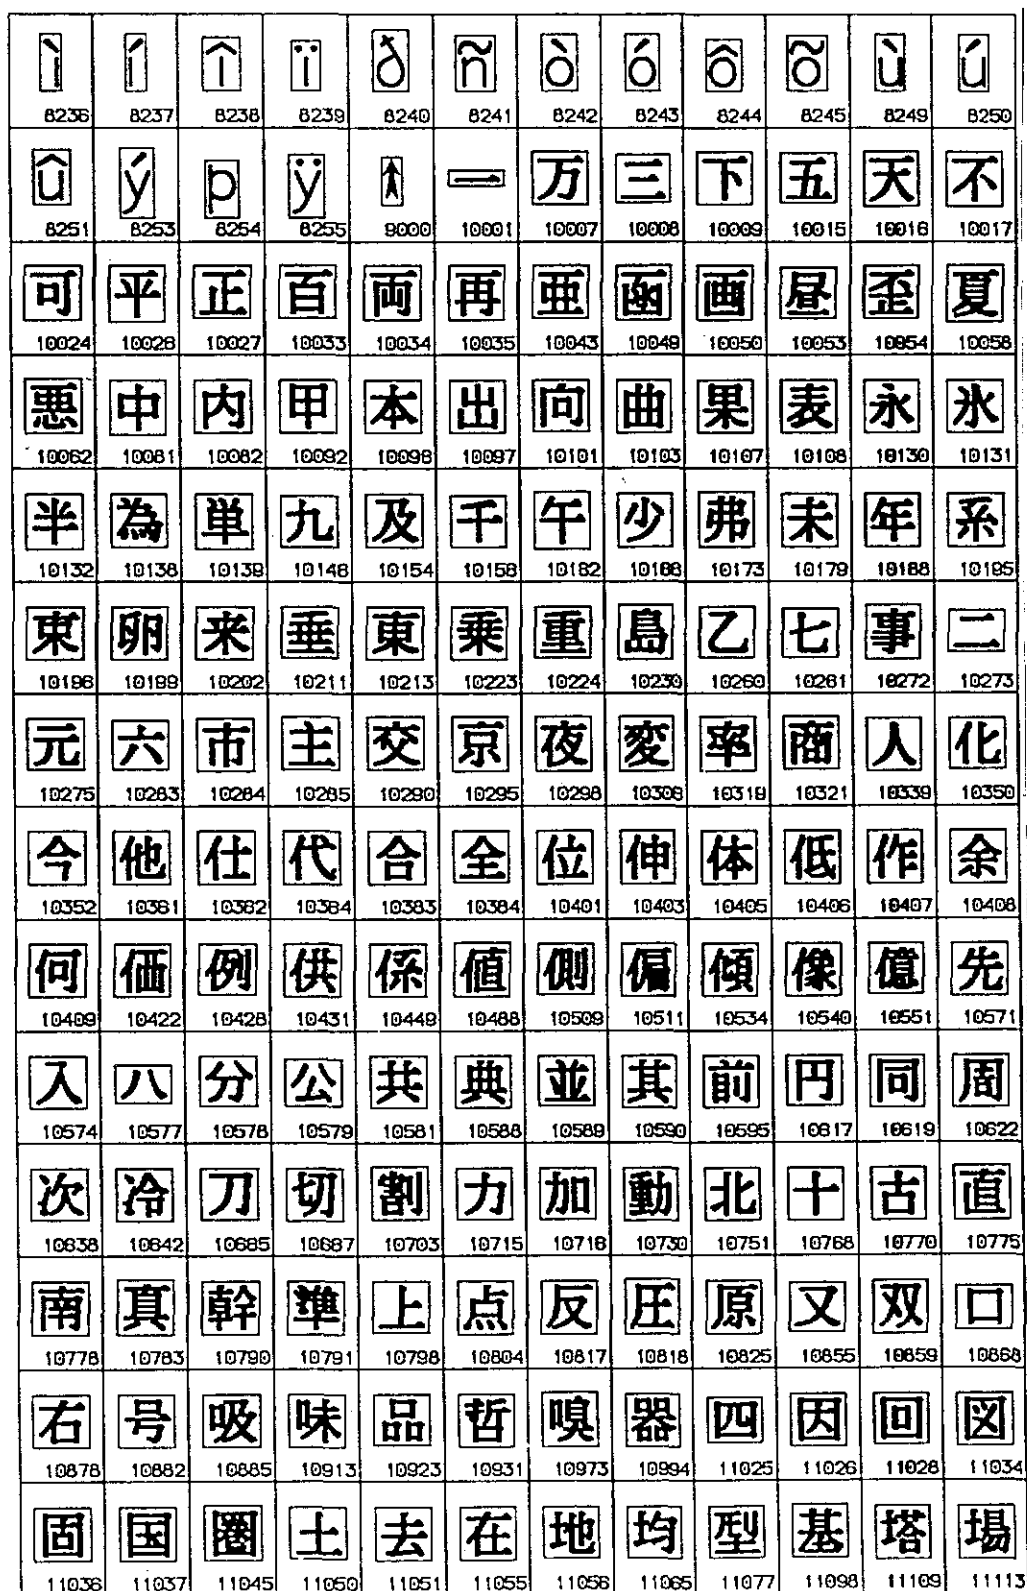 ì í î ï ð ñ ò ó ô õ ù ú
8236 8237 8238 8239 8240 8241 8242 8243 8244 8245 8249 8250
û ý þ ÿ 一 万 三 下 五 天 不
8251 8253 8254 8255 9000 10001 10007 10008 10009 10015 10016 10017
可 平 正 百 両 再 亜 函 画 昼 歪 夏
10024 10026 10027 10033 10034 10035 10043 10049 10050 10053 10054 10056
悪 中 内 甲 本 出 向 曲 果 表 永 氷
10062 10081 10082 10092 10096 10097 10101 10103 10107 10108 10130 10131
半 為 単 九 及 千 午 少 弗 未 年 系
10132 10138 10139 10146 10154 10156 10162 10166 10173 10179 10188 10195
束 卵 来 垂 東 乗 重 島 乙 七 事 二
10196 10199 10202 10211 10213 10223 10224 10230 10260 10261 10272 10273
元 六 市 主 交 京 夜 変 率 商 人 化
10275 10283 10284 10285 10290 10295 10298 10306 10319 10321 10339 10350
今 他 仕 代 合 全 位 伸 体 低 作 余
10352 10361 10362 10364 10383 10384 10401 10403 10405 10406 10407 10408
何 価 例 供 係 値 側 偏 傾 像 億 先
10409 10422 10428 10431 10449 10488 10509 10511 10534 10540 10551 10571
入 八 分 公 共 典 並 其 前 円 同 周
10574 10577 10578 10579 10581 10588 10589 10590 10595 10617 10619 10622
次 冷 刀 切 割 力 加 動 北 十 古 直
10638 10642 10685 10687 10703 10715 10718 10730 10751 10768 10770 10775
南 真 幹 準 上 点 反 圧 原 又 双 口
10778 10783 10790 10791 10798 10804 10817 10818 10825 10855 10859 10868
右 号 吸 味 品 哲 嗅 器 四 因 回 図
10878 10882 10885 10913 10923 10931 10973 10994 11025 11026 11028 11034
固 国 圏 土 去 在 地 均 型 基 塔 場
11036 11037 11045 11050 11051 11055 11056 11065 11077 11098 11109 11113